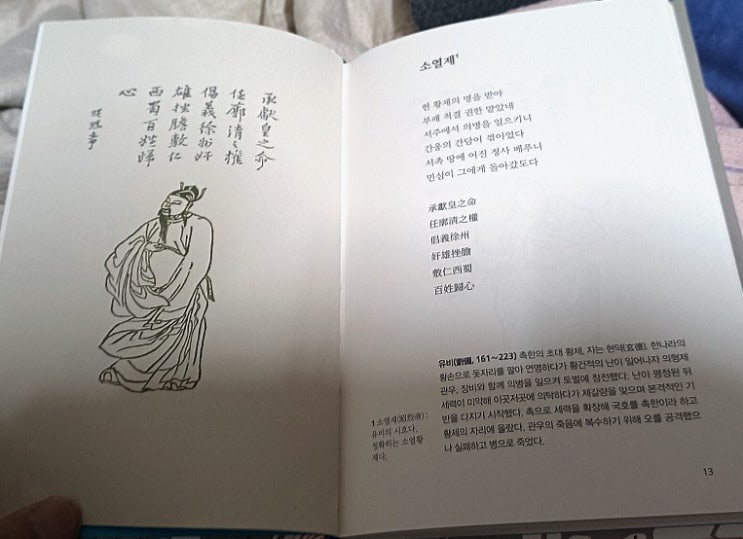 承獻皇之命
任廓清之權
倡義徐州奸
雄挫膽敷仁
西蜀百姓歸
心
소열제¹
헌 황제의 명을 받아
부패 척결 권한 맡았네
서주에서 의병을 일으키니
간웅의 간담이 꺾이었다
서촉 땅에 어진 정사 베푸니
민심이 그에게 돌아갔도다
承獻皇之命
任廓淸之權
倡義徐州
奸雄挫膽
敷仁西蜀
百姓歸心
유비(劉備, 161~223) 촉한의 초대 황제. 자는 현덕(玄德). 한나라의
황손으로 돗자리를 팔아 연명하다가 황건적의 난이 일어나자 의형제
관우, 장비와 함께 의병을 일으켜 토벌에 참전했다. 난이 평정된 뒤
세력이 미약해 이곳저곳에 의탁하다가 제갈량을 맞으며 본격적인 기
반을 다지기 시작했다. 촉으로 세력을 확장해 국호를 촉한이라 하고
황제의 자리에 올랐다. 관우의 죽음에 복수하기 위해 오를 공격했으
나 실패하고 병으로 죽었다.
1 소열제(昭烈帝) :
유비의 시호다.
정확히는 소열황
제다.
13